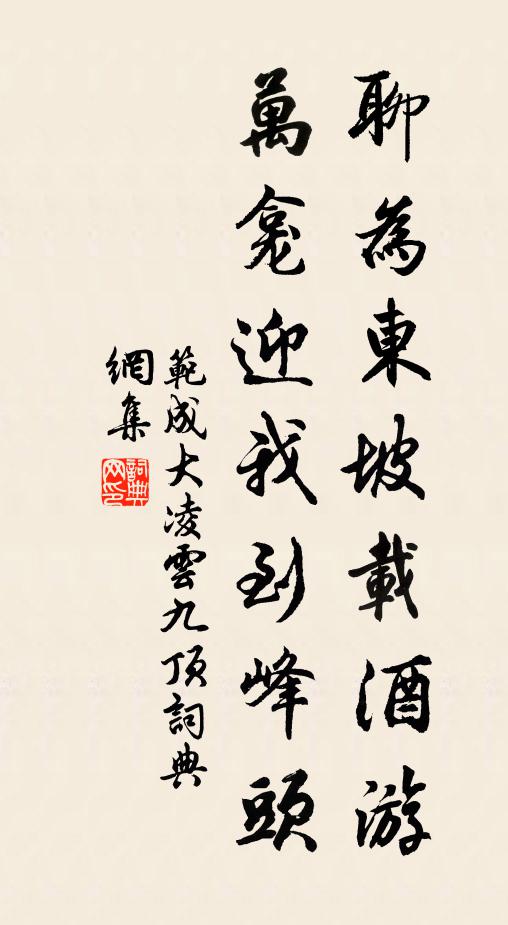 聊為東坡載酒游
萬龕迎我到峰頭
範成大凌雲九頂詞典
網集
詞典網印